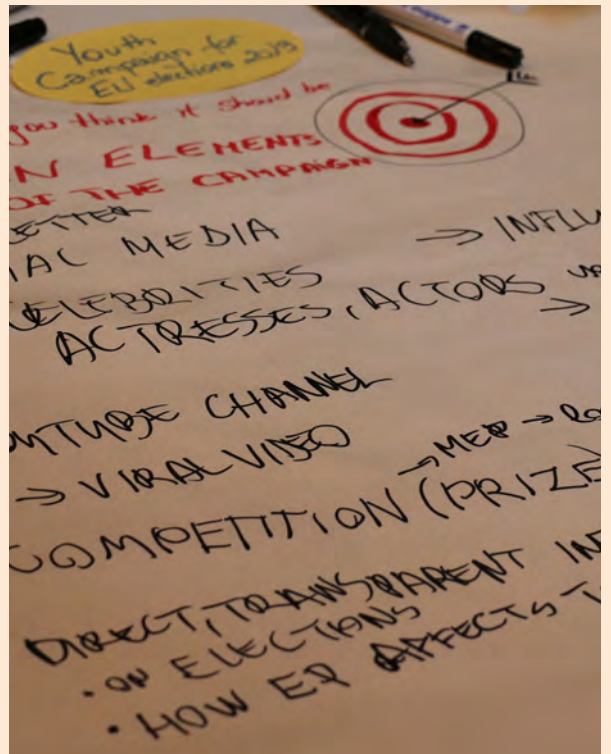 Youth
Campaign for
EU elections 2013
you think it should be
N ELEMENTS
OF THE CAMPAIGN
ETTER
IAL MEDIA → INFLU
CELEBRITIES
ACTRESSES, ACTORS →
OUTUBE CHANNEL
→ VIRAL VIDEO
→ MEP →
COMPETITION (PRIZE
DIRECT, TRANSPARENT IN
• ON ELECTIONS
• HOW EP AFFECTS